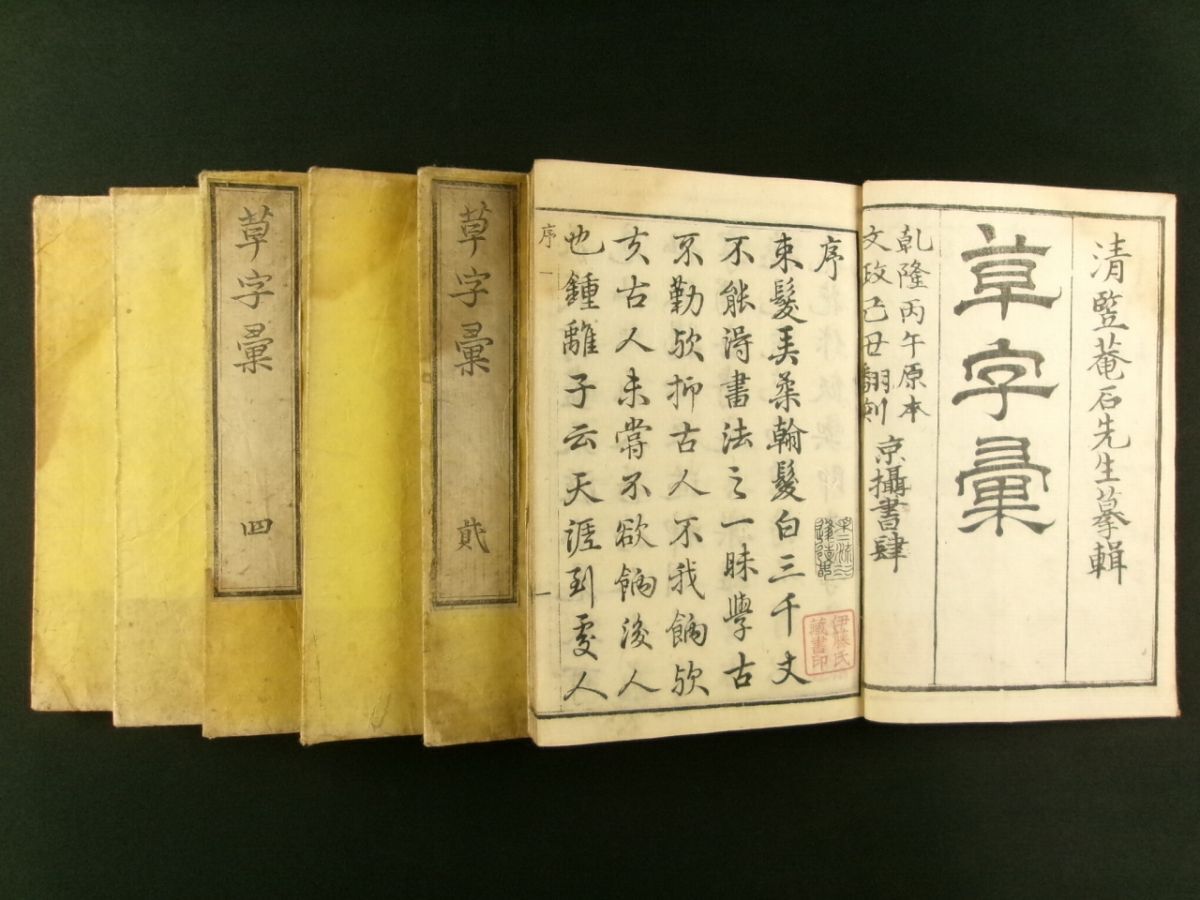 清竪菴石先生摹輯
草字彙
乾隆丙午原本
文政己丑翻刻
京攝書肆
序
束髮弄柔翰髮白三千丈
不能得書法之一昧學古
不勤歟抑古人不我餉歟
夫古人未嘗不欲餉後人
也鍾離子云天涯到處人
序
一
伊藤氏
藏書印
草字彙
貳
草字彙
四